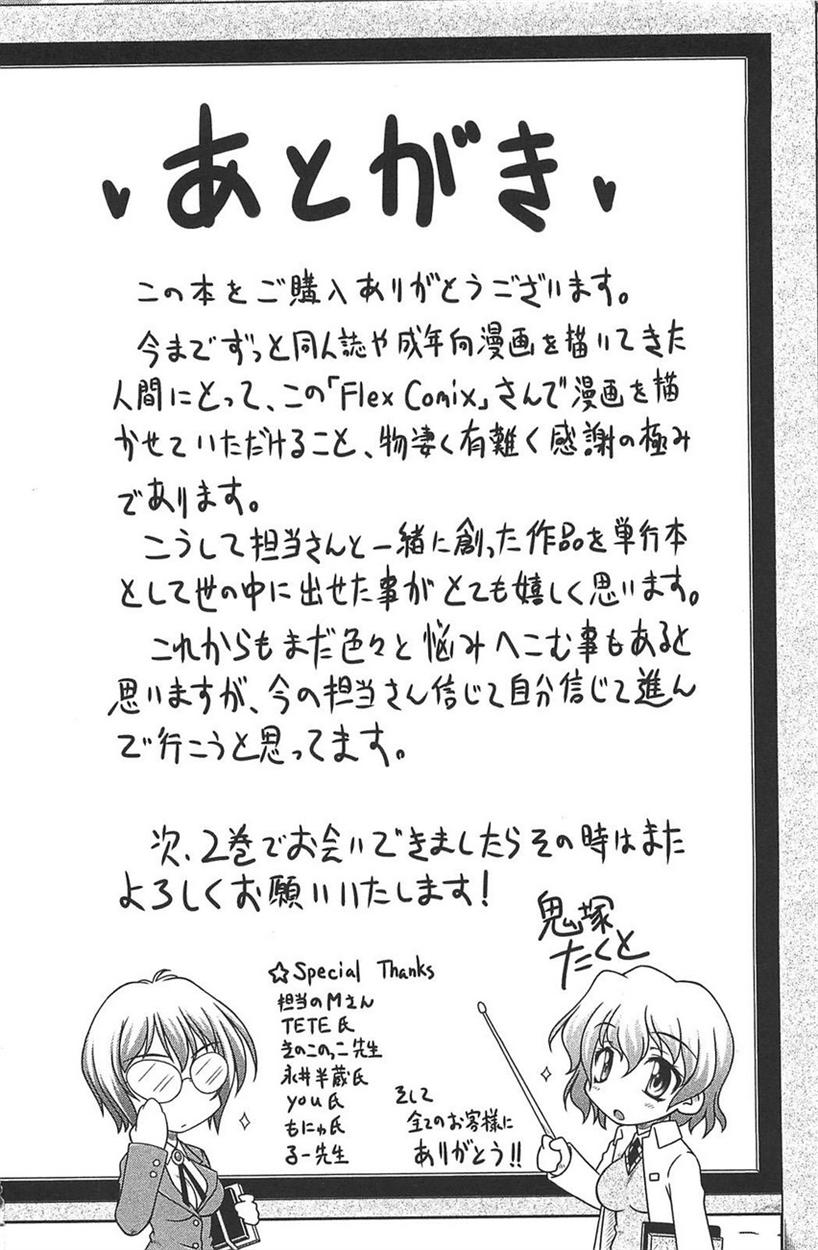 あとがき
この本をご購入ありがとうございます。
今までずっと同人誌や成年向漫画を描いてきた
人間にとって、この「Flex Comix」さんで漫画を描
かせていただけること、物凄く有難く感謝の極み
であります。
こうして担当さんと一緒に創った作品を単行本
として世の中に出せた事がとても嬉しく思います。
これからもまだ色々と悩みへこむ事もあると
思いますが、今の担当さん信じて自分信じて進ん
で行こうと思ってます。
次、2巻でお会いできましたらその時はまた
よろしくお願いいたします!
鬼塚
たくと
☆Special Thanks
担当のMさん
TETE氏
きのこのっこ先生
永井半蔵氏
you氏
もにゅ氏
るー先生
そして
全てのお客様に
ありがとう!!